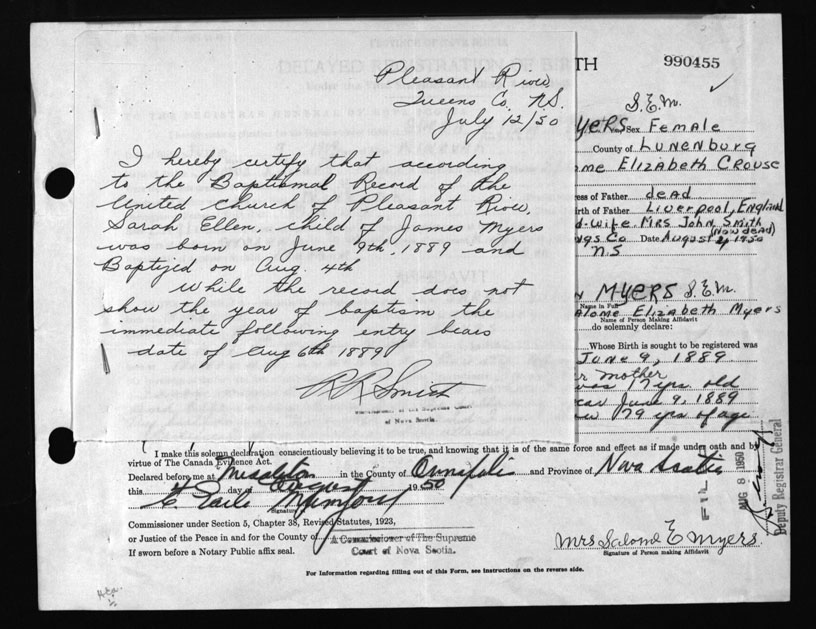 Pleasant River
Queens Co. N.S.
July 12/50
I hereby certify that according
to the Baptismal Record of the
United Church of Pleasant River,
Sarah Ellen, child of James Myers
was born on June 9th. 1889 and
Baptized on Aug. 4th
While the record does not
show the year of baptism the
immediate following entry bears
date of Aug 6th 1889
R R Smith
of Nova Scotia.
TH 990455
S.E.M.
yers Sex Female
County of Lunenburg
ome Elizabeth Crouse
ess of Father dead
irth of Father Liverpool, England
d-wife Mrs John Smith
(now dead)
ngs Co Date August 4 1950
N S
MYERS S.E.M.
Name in Full
alome Elizabeth Myers
Name of Person Making Affidavit
do solemnly declare:
Whose Birth is sought to be registered was
June 9, 1889.
er mother
was 17 yrs. old
ear June 9, 1889
ow 79 yrs of age
I make this solemn declaration conscientiously believing it to be true, and knowing that it is of the same force and effect as if made under oath and by
virtue of The Canada Evidence Act.
Declared before me at Middleton in the County of Annapolis and Province of Nova Scotia
this day of August 1950
Signature
Commissioner under Section 5, Chapter 38, Revised Statutes, 1923,
or Justice of the Peace in and for the County of A Commissioner of The Supreme
If sworn before a Notary Public affix seal. Court of Nova Scotia.
Mrs Salome E Myers.
Signature of Person making Affidavit
For Information regarding filling out of this Form, see Instructions on the reverse side.
FIL
AUG 8 1950
Deputy Registrar General